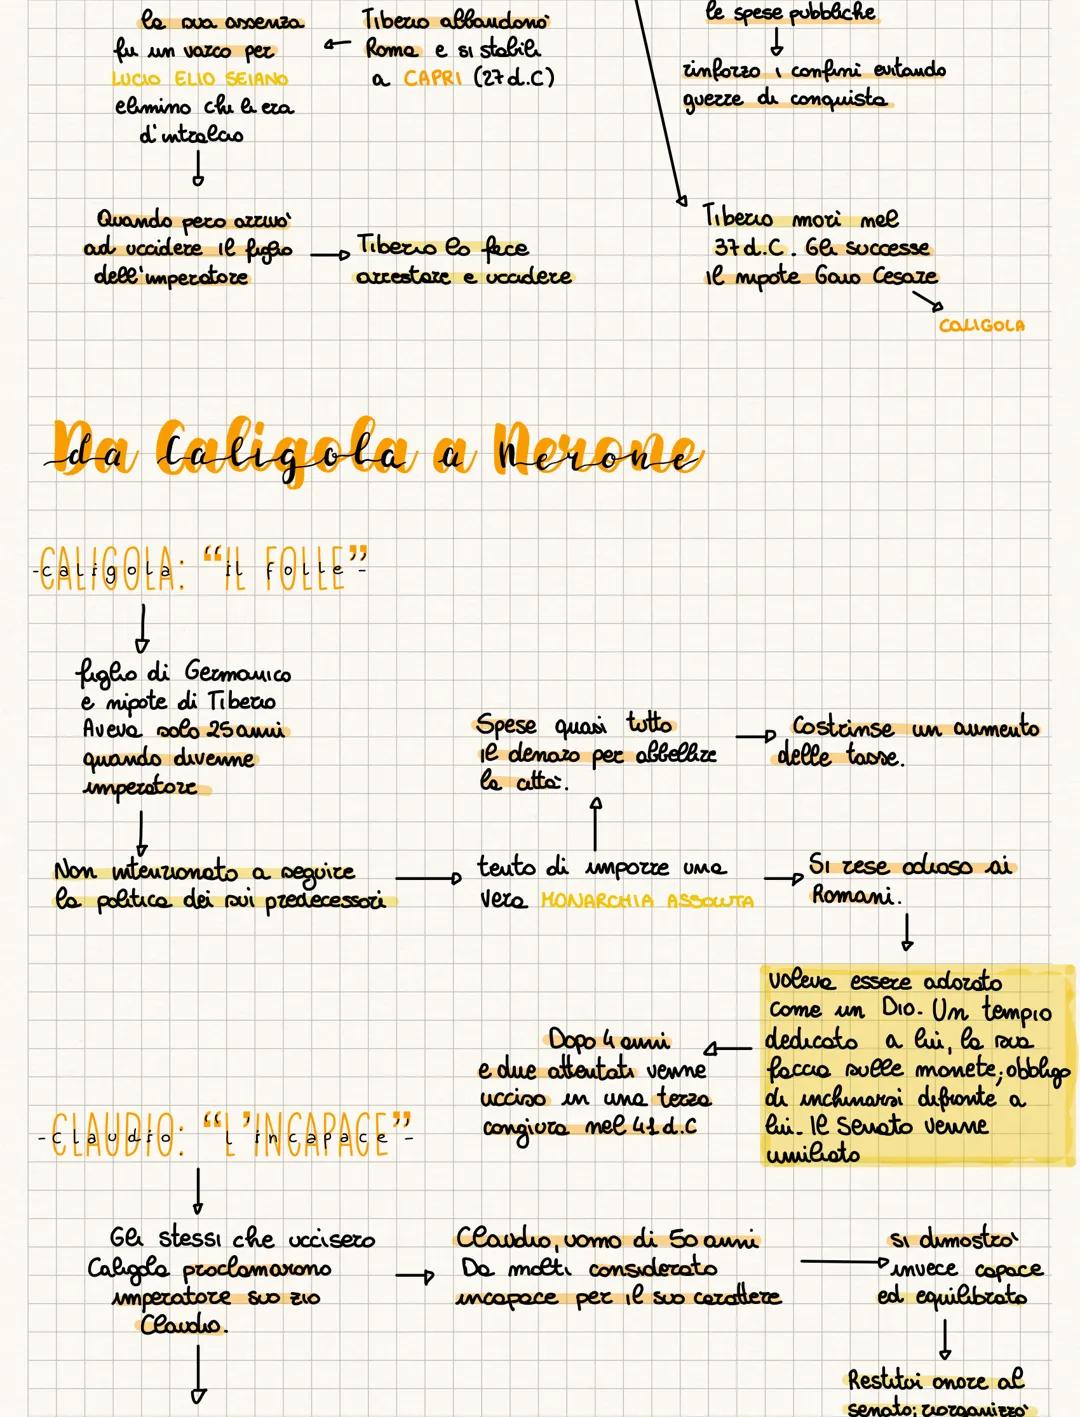 la sua assenza
fu un varco per
LUCIO ELIO SEIANO
elimino chi li era
d'intralcio
Tiberio abbandonò
Roma e si stabilì
a CAPRI (27 d.C)
le spese pubbliche
rinforzo i confini evitando
guerre di conquista
Quando pero arrivo'
ad uccidere il figlio
dell'imperatore
Tiberio lo fece
arrestare e uccidere
Tiberio morì nel
37 d.C. Gli successe
il nipote Gaio Cesare
CALIGOLA
Da Caligola a Nerone
CALIGOLA: “IL FOLLE”
figlio di Germanico
e nipote di Tiberio
Aveva solo 25 anni
quando divenne
imperatore
Spese quasi tutto
il denaro per abbellire
la città.
Costrinse un aumento
delle tasse.
Non intenzionato a seguire
la politica dei sui predecessori
tento di imporre una
vera MONARCHIA ASSOLUTA
Si rese odioso ai
Romani.
voleva essere adorato
come un Dio. Un tempio
dedicato a lui, la sua
faccia sulle monete, obbligo
di inchinarsi difronte a
lui. Il Senato venne
umiliato
Dopo 4 anni
e due attentati venne
ucciso in una terza
congiura nel 41 d.C
CLAUDIO: “L'INCAPACE”
Gli stessi che uccisero
Caligola proclamarono
imperatore suo zio
Claudio.
Claudio, uomo di 50 anni
Da molti considerato
incapace per il suo carattere
si dimostro'
invece capace
ed equilibrato
Restitui onore al
senato; riorganizzo'